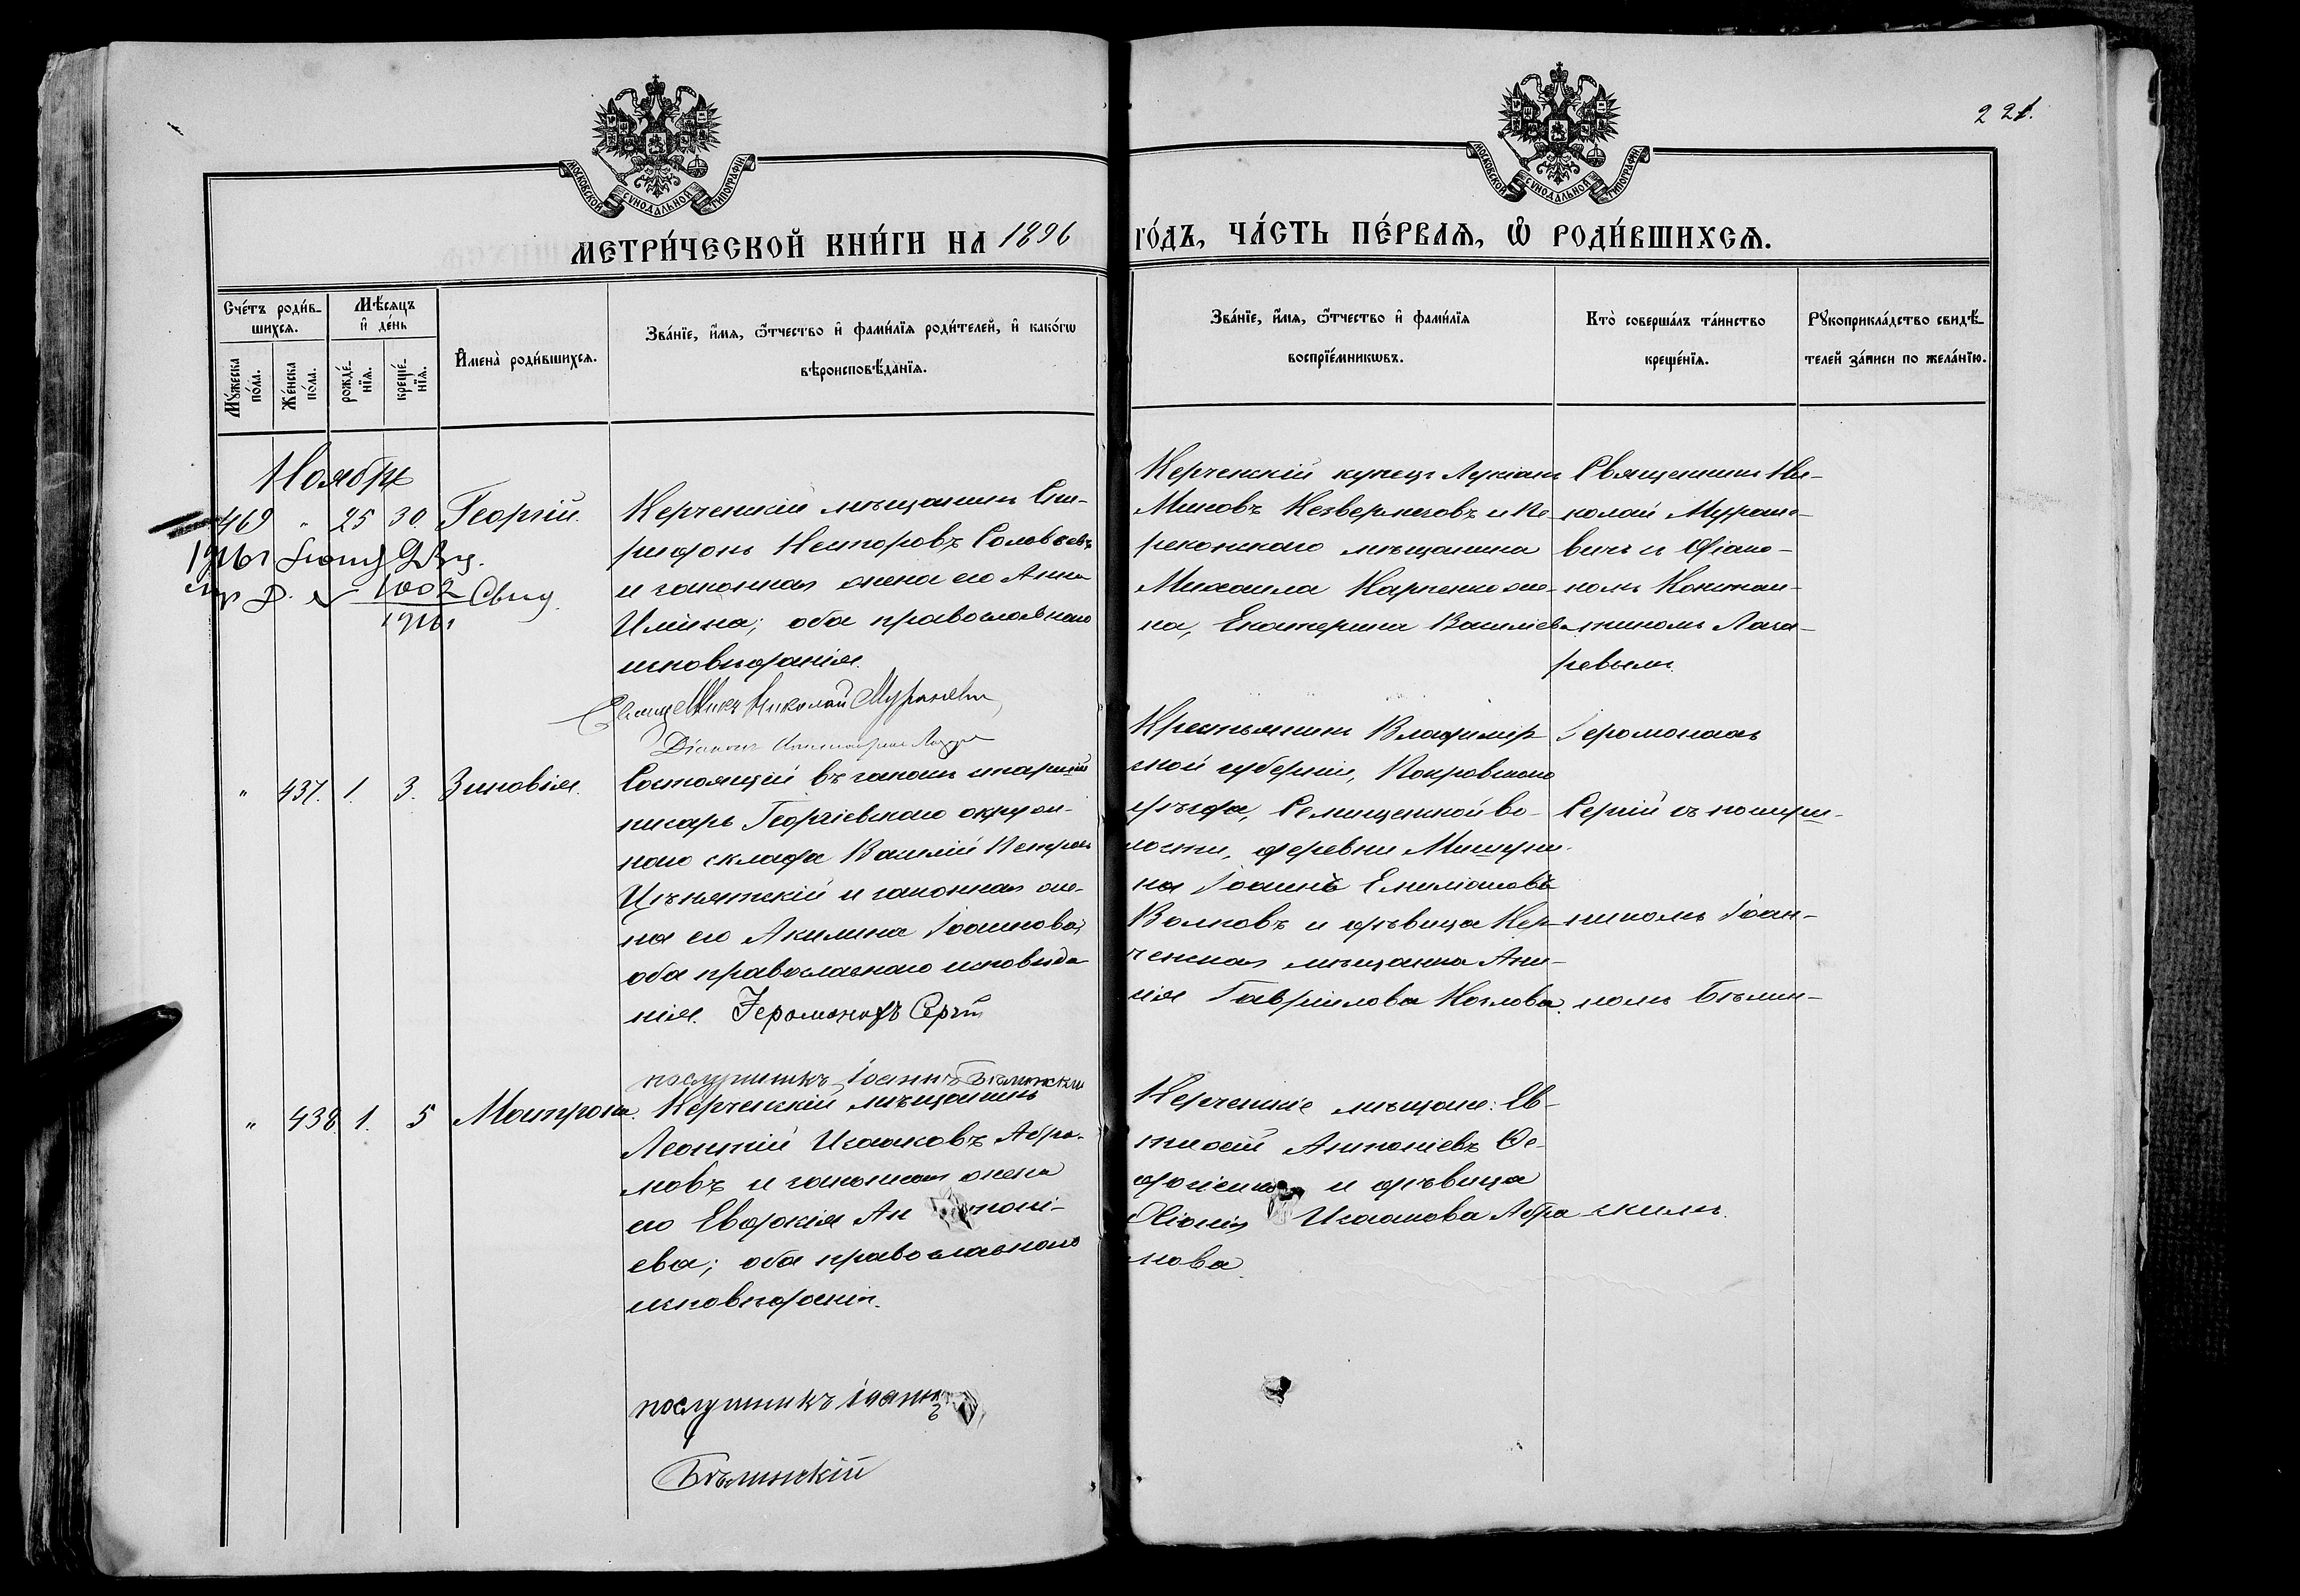 221.
МОСКОВСКОЙ СУНОДАЛЬНОЙ ТИПОГРАФІИ
МОСКОВСКОЙ СУНОДАЛЬНОЙ ТИПОГРАФІИ
МЕТРИ́ЧЕСКОЙ КНИ́ГИ НА 1896 ГО́ДЪ, ЧА́СТЬ ПЕ́РВАѦ, Ѡ РОДИ́ВШИХСѦ.
Сче́тъ роди́в-
шихсѧ.
Мѣ́сѧцъ
и҆ де́нь
Мꙋ́жеска
по́ла.
Же́нска
по́ла.
рожде́-
нїѧ.
креще́-
нїѧ.
И҆мена̀ роди́вшихсѧ.
Зва́нїе, и҆́мѧ, ѻ҆́тчество и҆ фами́лїѧ роди́телей, и҆ како́гѡ
вѣроисповѣ́данїѧ.
Зва́нїе, и҆́мѧ, ѻ҆́тчество и҆ фами́лїѧ
воспрїе́мникѡвъ.
Кто̀ соверша́лъ та́инство
креще́нїѧ.
Рꙋкоприкла́дство свидѣ́-
телей за́писи по жела́нїю.
Ноября
469 " 25 30. Георгій.
1916г
1002 Свид.
1916г
Керченскій мѣщанинъ Спи-
ридонъ Несторовъ Соловьевъ
и законная жена его Анна
Ильина; оба православнаго
исповѣданія.
Священникъ Николай Мураневичъ
Діаконъ Константинъ Лазарев
Керченскій купецъ Лукіанъ
Миновъ Незвермеговъ и Пе-
рекопскаго мѣщанина
Михаила Карпенко же-
на, Екатерина Василіева
Священникъ Ни-
колай Муране-
вичъ и діако-
номъ Констан-
тиномъ Лаза-
ревымъ.
" 437. 1. 3. Зиновія.
Состоящій въ запасѣ старшій
писарь Георгіевскаго окруж-
наго склада Василій Петровъ
Цѣнятскій и законная же-
на его Акилина Іоаннова;
оба православнаго исповѣда
нія. Іеромонахъ Сергій
послушникъ Іоаннъ Бѣлинскій
Крестьянинъ Владимір-
ской губерніи, Покровскаго
уѣзда, Селищенской во-
лости, деревни Мишули-
на Іоаннъ Емиліановъ
Волковъ и дѣвица Кер-
ченская мѣщанка Ани-
сія Гавріилова Козлова.
Іеромонахъ
Сергій съ послуш-
никомъ Іоан-
номъ Бѣлин-
скимъ.
" 438. 1. 5 Матрона.
Керченскій мѣщанинъ
Леонтій Исааковъ Абра-
мовъ и законная жена
его Евдокія Антоні-
ева; оба православнаго
исповѣданія.
послушникъ Іоаннъ
Бѣлинскій
Керченскіе мѣщане: Ев-
тихій Антоніевъ Ѳе-
и дѣвица
Исаакова Абра
мова.